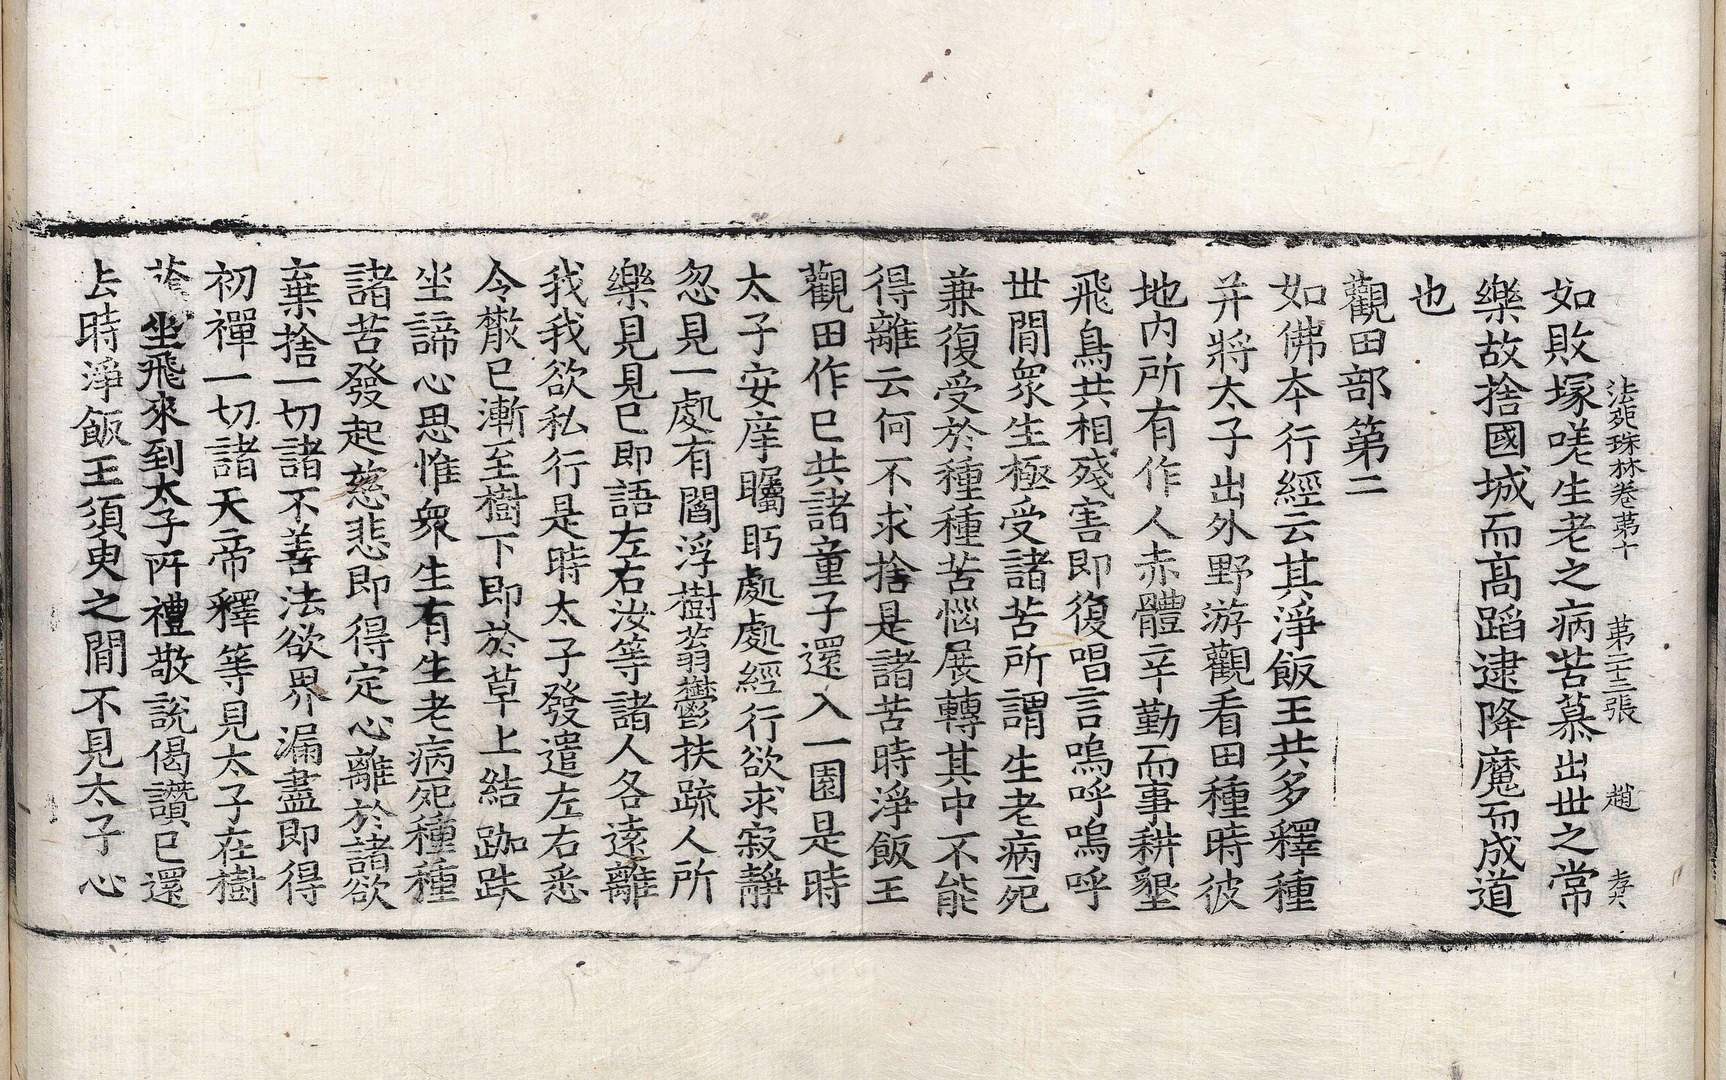 法苑珠林卷第十 第二十三張 趙
如敗塚嗟生老之病苦慕出世之常
樂故捨國城而高蹈逮降魔而成道
也
觀田部第二
如佛本行經云其淨飯王共多釋種
并將太子出外野游觀看田種時彼
地內所有作人赤體辛勤而事耕墾
飛鳥共相殘害即復唱言嗚呼嗚呼
世間衆生極受諸苦所謂生老病死
兼復受於種種苦惱展轉其中不能
得離云何不求捨是諸苦時淨飯王
觀田作已共諸童子還入一園是時
太子安庠矚眄處處經行欲求寂靜
忽見一處有閻浮樹蓊鬱扶疏人所
樂見見已即語左右汝等諸人各遠離
我我欲私行是時太子發遣左右悉
令散已漸至樹下即於草上結跏趺
坐諦心思惟衆生有生老病死種種
諸苦發起慈悲即得定心離於諸欲
棄捨一切諸不善法欲界漏盡即得
初禪一切諸天帝釋等見太子在樹
坐飛來到太子所禮敬說偈讚已還
去時淨飯王須臾之間不見太子心